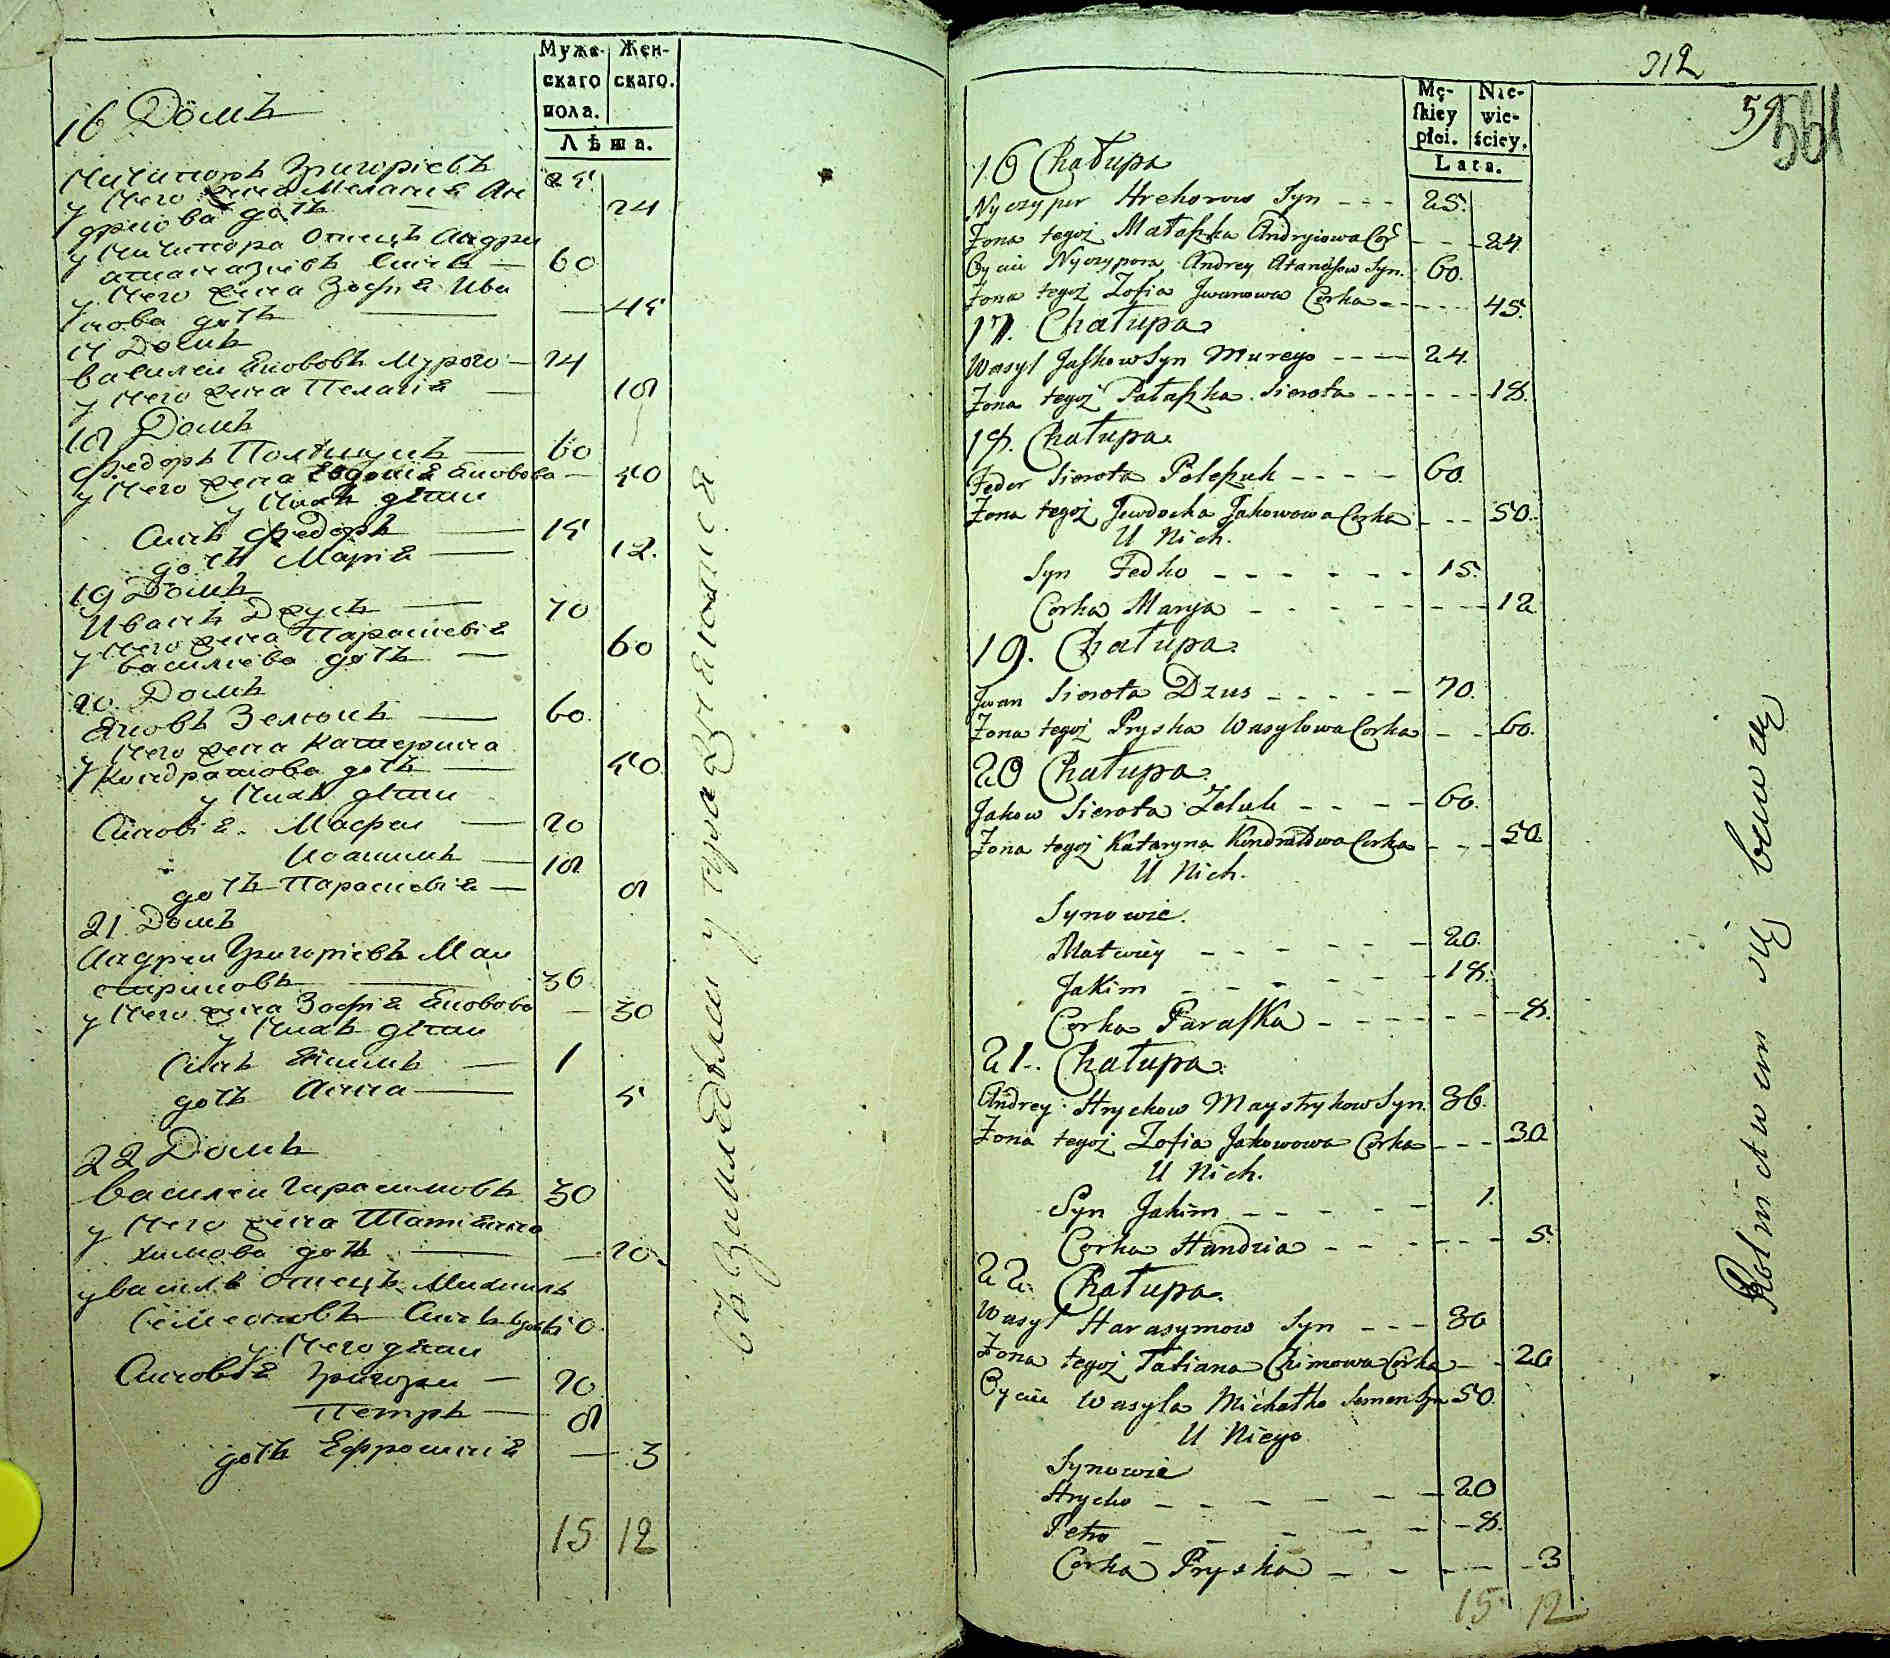 Муже- Жен-
скаго скаго.
пола.
Лѣта.
16 Домъ
Ничипоръ Григоріевъ 25
у него жена Меланія Ан 24
дріова дочь
у Ничипора Отецъ Андрій
Атаназіевъ Сынъ — 60
у него жена Зофія Ива
нова дочь — 45
17 Домъ
Василей Яковов Мурого — 24
у него жена Пелагія — 18
18 Домъ
Федоръ Полѣщукъ — 60
у него жена Евдокія Яковова — 50
у нихъ дѣти
Сынъ Федоръ — 15
дочь Марія — 12.
19 Домъ
Иванъ Дзусъ — 70
у него жена Парасковія 60
Василіева дочь —
20. Домъ
Яковъ Зелюкъ — 60.
у него жена Катерина
Кондратова дочь — 50
у нихъ дѣти
Синовія. Матфей — 20
Иоакимъ — 18
дочь Парасковія — 8
21. Домъ
Андрей Григоріевъ Май
стриковъ — 36
у него жена Зофія Яковова — 30
у нихъ дѣти
Синъ Якимъ — 1
дочь Анна — 5
22 Домъ
Василей Гарасимовъ 30
у него жена Татіянна
химова дочь — 20
у Василя Отецъ Михайлъ
Семеоновъ Синъ 50
у него дѣти
Синовія Григорій — 20
Петръ — 8
дочь Ефросинія — 3
15 12
Въ Земледѣліи упражняются
312
59
561
Mę- Nie-
ſkiey wie-
płci. ściey.
Lata.
16 Chałupa
Nyczypor Hrehorow Syn - - - 25.
Żona tegoż Małaſzka Andryiowa Cor - - - 24
Oyciec Nyczypora Andrey Atanasow Syn. 60.
Żona tegoż Zofia Jwanowa Corka - - - - 45.
17. Chałupa
Wasyl Jaſkow Syn Murego - - - - 24.
Żona tegoż Pałaſzka Sierota - - - - - - 18.
18. Chałupa.
Feder Sierota Poleszuk - - - - 60.
Żona tegoż Jewdocha Jakowowa Corka - - - 50.
U Nich.
Syn Fedko - - - - - - 15.
Corka Marya - - - - - - - 12
19. Chałupa.
Jwan Sierota Dzus - - - - - 70.
Żona tegoż Pryska Wasylowa Corka - - 60.
20 Chałupa.
Jakow Sierota Zeluk - - - - 60.
Żona tegoż Kataryna Kondratowa Corka - - - 50
U Nich.
Synowie.
Matwiey - - - - - - 20.
Jakim - - - - - 18.
Corka Paraſka - - - - - - - 8.
21. Chałupa.
Andrey Hryckow Maystrykow Syn. 36.
Żona tegoż Zofia Jakowowa Corka - - - 30
U Nich.
Syn Jakim - - - - - 1.
Corka Handzia - - - - - - 5.
22. Chałupa.
Wasyl Harasymow Syn - - - 30
Żona tegoż Tatiana Chimowa Corka - - 20
Oyciec Wasyla Michałko Semen Syn 50.
U Niego
Synowie
Hrycko - - - - - - 20
Petro - - - - - 8.
Corka Pryska - - - - - 3
15 12
Rolnictwem się bawią